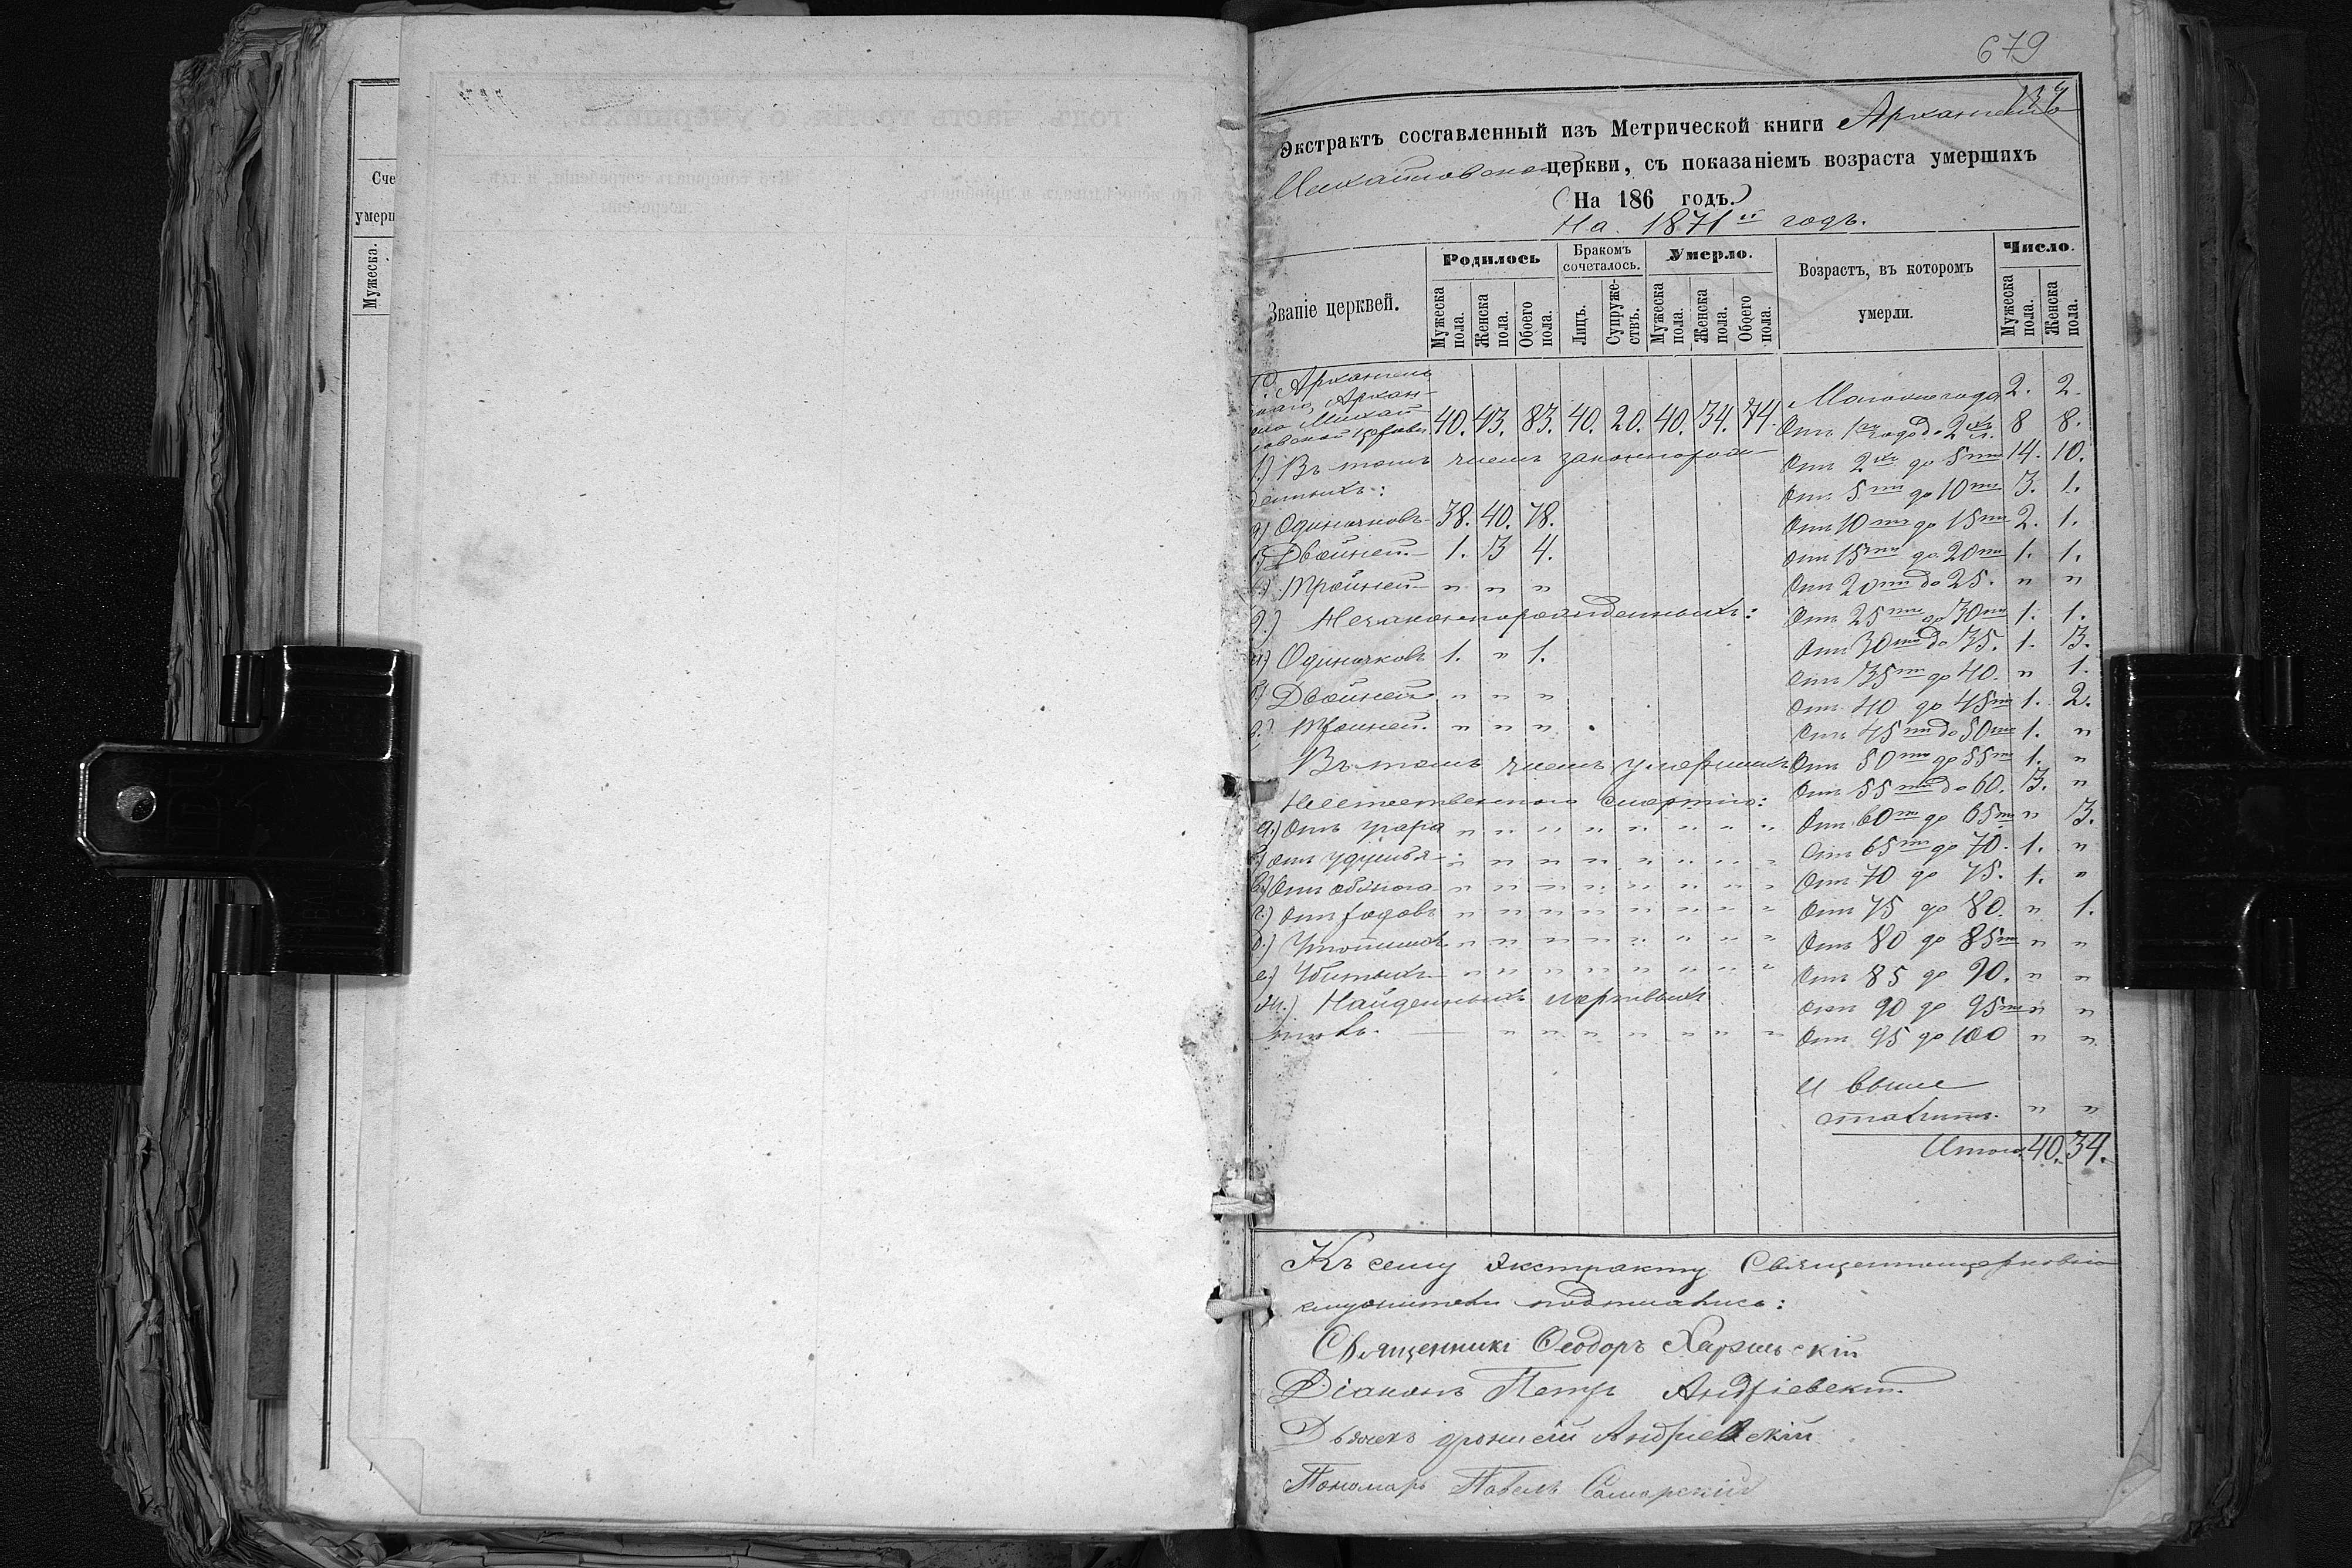 Сче
умерш
Мужеска.
679
137
Экстрактъ составленный изъ Метрической книги Архангело
Михайловской церкви, съ показаніемъ возраста умершихъ
(На 186 годъ.)
На 1871й годъ.
Званіе церквей.
Родилось
Бракомъ сочеталось.
Умерло.
Возрастъ, въ которомъ умерли.
Число.
Мужеска пола.
Женска пола.
Обоего пола.
Лицъ.
Супруже-ствъ.
Мужеска пола.
Женска пола.
Обоего пола.
Мужеска пола.
Женска пола.
Архан-
Михай-
40. 43. 83. 40. 20. 40. 34. 74.
1.) Въ томъ числѣ законнорож-
денныхъ:
а) Одиночковъ 38. 40. 78.
б) Двойней 1. 3 4.
в.) Тройней " " "
2.) Незаконнорожденныхъ:
а) Одиночковъ 1. " 1.
б) Двойней " " "
в.) Тройней. " " "
Въ томъ числѣ умершихъ
Неестественною смертію:
а.) Отъ удара " " " " " " " "
б) отъ удушья " " " " " " " "
в) Отъ " " " " " " " "
г.) отъ родовъ " " " " " " " "
д.) " " " " " " " "
е.) Убитыхъ " " " " " " " "
ж.) Найденныхъ мертвыхъ
" " " " " " "
Менѣе года 2. 2.
Отъ 1го года до 2хъ л. 8 8.
Отъ 2хъ до 5ти 14. 10.
Отъ 5ти до 10ти 3. 1.
Отъ 10ти до 15ти 2. 1.
Отъ 15ти до 20ти 1. 1.
Отъ 20ти до 25. " "
Отъ 25ти до 30ти 1. 1.
Отъ 30ти до 35. 1. 3.
Отъ 35ти до 40. " 1.
Отъ 40 до 45ти 1. 2.
Отъ 45ти до 50ти 1. "
Отъ 50ти до 55ти 1. "
Отъ 55ти до 60. 3. "
Отъ 60ти до 65ти " 3.
Отъ 65ти до 70. 1. "
Отъ 70 до 75. 1. "
Отъ 75 до 80. " 1.
Отъ 80 до 85ти " "
Отъ 85 до 90. " "
Отъ 90 до 95ти " "
Отъ 95 до 100 " "
и выше
" "
Итого. 40. 34.
Къ сему экстракту Священноцерковно
служители подписались:
Священникъ Ѳеодоръ
Діаконъ Петръ Андріевскій
Дьячекъ Андріевскій
Пономарь Павелъ Самарскій